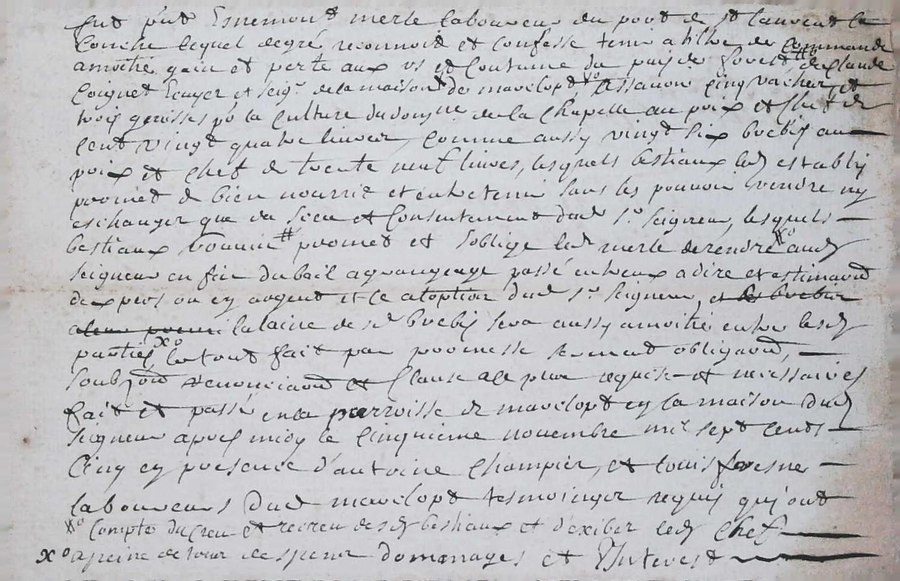 fut p'nt Esnemont merle laboureur du port de st laurent la
Conche lequel degré reconnoit et confesse tenir a tiltre de commande
amoitié gain et perte aux us et Coutume du pays de forest # de claude
Coignet Ecuyer et seigr de la maison do mavelopt xo assavoir Cinq vaches et
trois genisses pr la Culture du domne de la Chapelle au prix et chef de
Cent vingt quatre livres, comme aussy vingt six brebis au
prix et chef de trente neuf livres, lesquels bestiaux led estably
promet de bien nourrir et entretenir sans les pouvoir vendre ny
eschanger que du sceu et Consentement dud sr seigneur, lesquels
bestiaux # promet et soblige led merle de rendre xo aud
seigneur en fin du bail a grangeage passé entreux a dire et estimaon
dexpers ou en argent et ce aloption dud sr seigneur, et les brebis
la laine de sd brebis sera aussy amoitié entre lesd
parties xo le tout fait par promesse serment obligaon,
soubzon renonciaon et Clause a le plus requise et necessaires
fait et passé en la parroisse de mavelopt en la maison dud
seigneur apres midy le Cinquieme novembre mil sept cents
Cinq en presence d'antoine Champier, et louis fresne
laboureurs dud mavelopt tesmoings requis qui ont
#o Compte du creu et recreu de sd bestiaux et d'exiber led chef
xo a peine de tous despens dommages et Interest